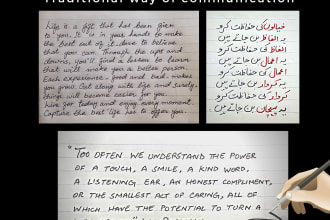 Traditional way of communication
Life is a gift that has been given
to you. It is in your hands to make
the best out of it. Dare to believe
that you can. Through the ups and
downs, you'll find a lesson to learn
that will make you a better person.
Each experience, good and bad, makes
you grow. Get along with life and surely,
things will become easier for you.
Live for today and enjoy every moment.
Capture the best life has to offer you.
خیالوں کی حفاظت کرو
یہ الفاظ بن جاتے ہیں
الفاظ کی حفاظت کرو
یہ اعمال بن جاتے ہیں
اعمال کی حفاظت کرو
یہ کردار بن جاتے ہیں
کردار کی حفاظت کرو
یہ پہچان بن جاتے ہیں
"TOO OFTEN WE UNDERSTAND THE POWER
OF A TOUCH, A SMILE, A KIND WORD,
A LISTENING EAR, AN HONEST COMPLIMENT,
OR THE SMALLEST ACT OF CARING, ALL OF
WHICH HAVE THE POTENTIAL TO TURN A